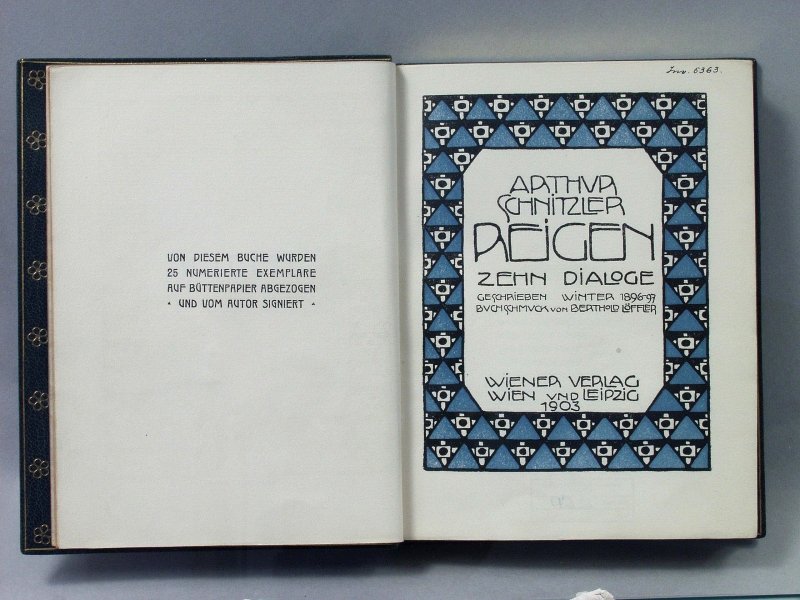 VON DIESEM BUCHE WURDEN
25 NUMERIERTE EXEMPLARE
AUF BÜTTENPAPIER ABGEZOGEN
UND VOM AUTOR SIGNIERT
Inv. 6363.
ARTHUR
SCHNITZLER
REIGEN
ZEHN DIALOGE
GESCHRIEBEN WINTER 1896-97
BUCHSCHMUCK VON BERTHOLD LÖFFLER
WIENER VERLAG
WIEN UND LEIPZIG
1903